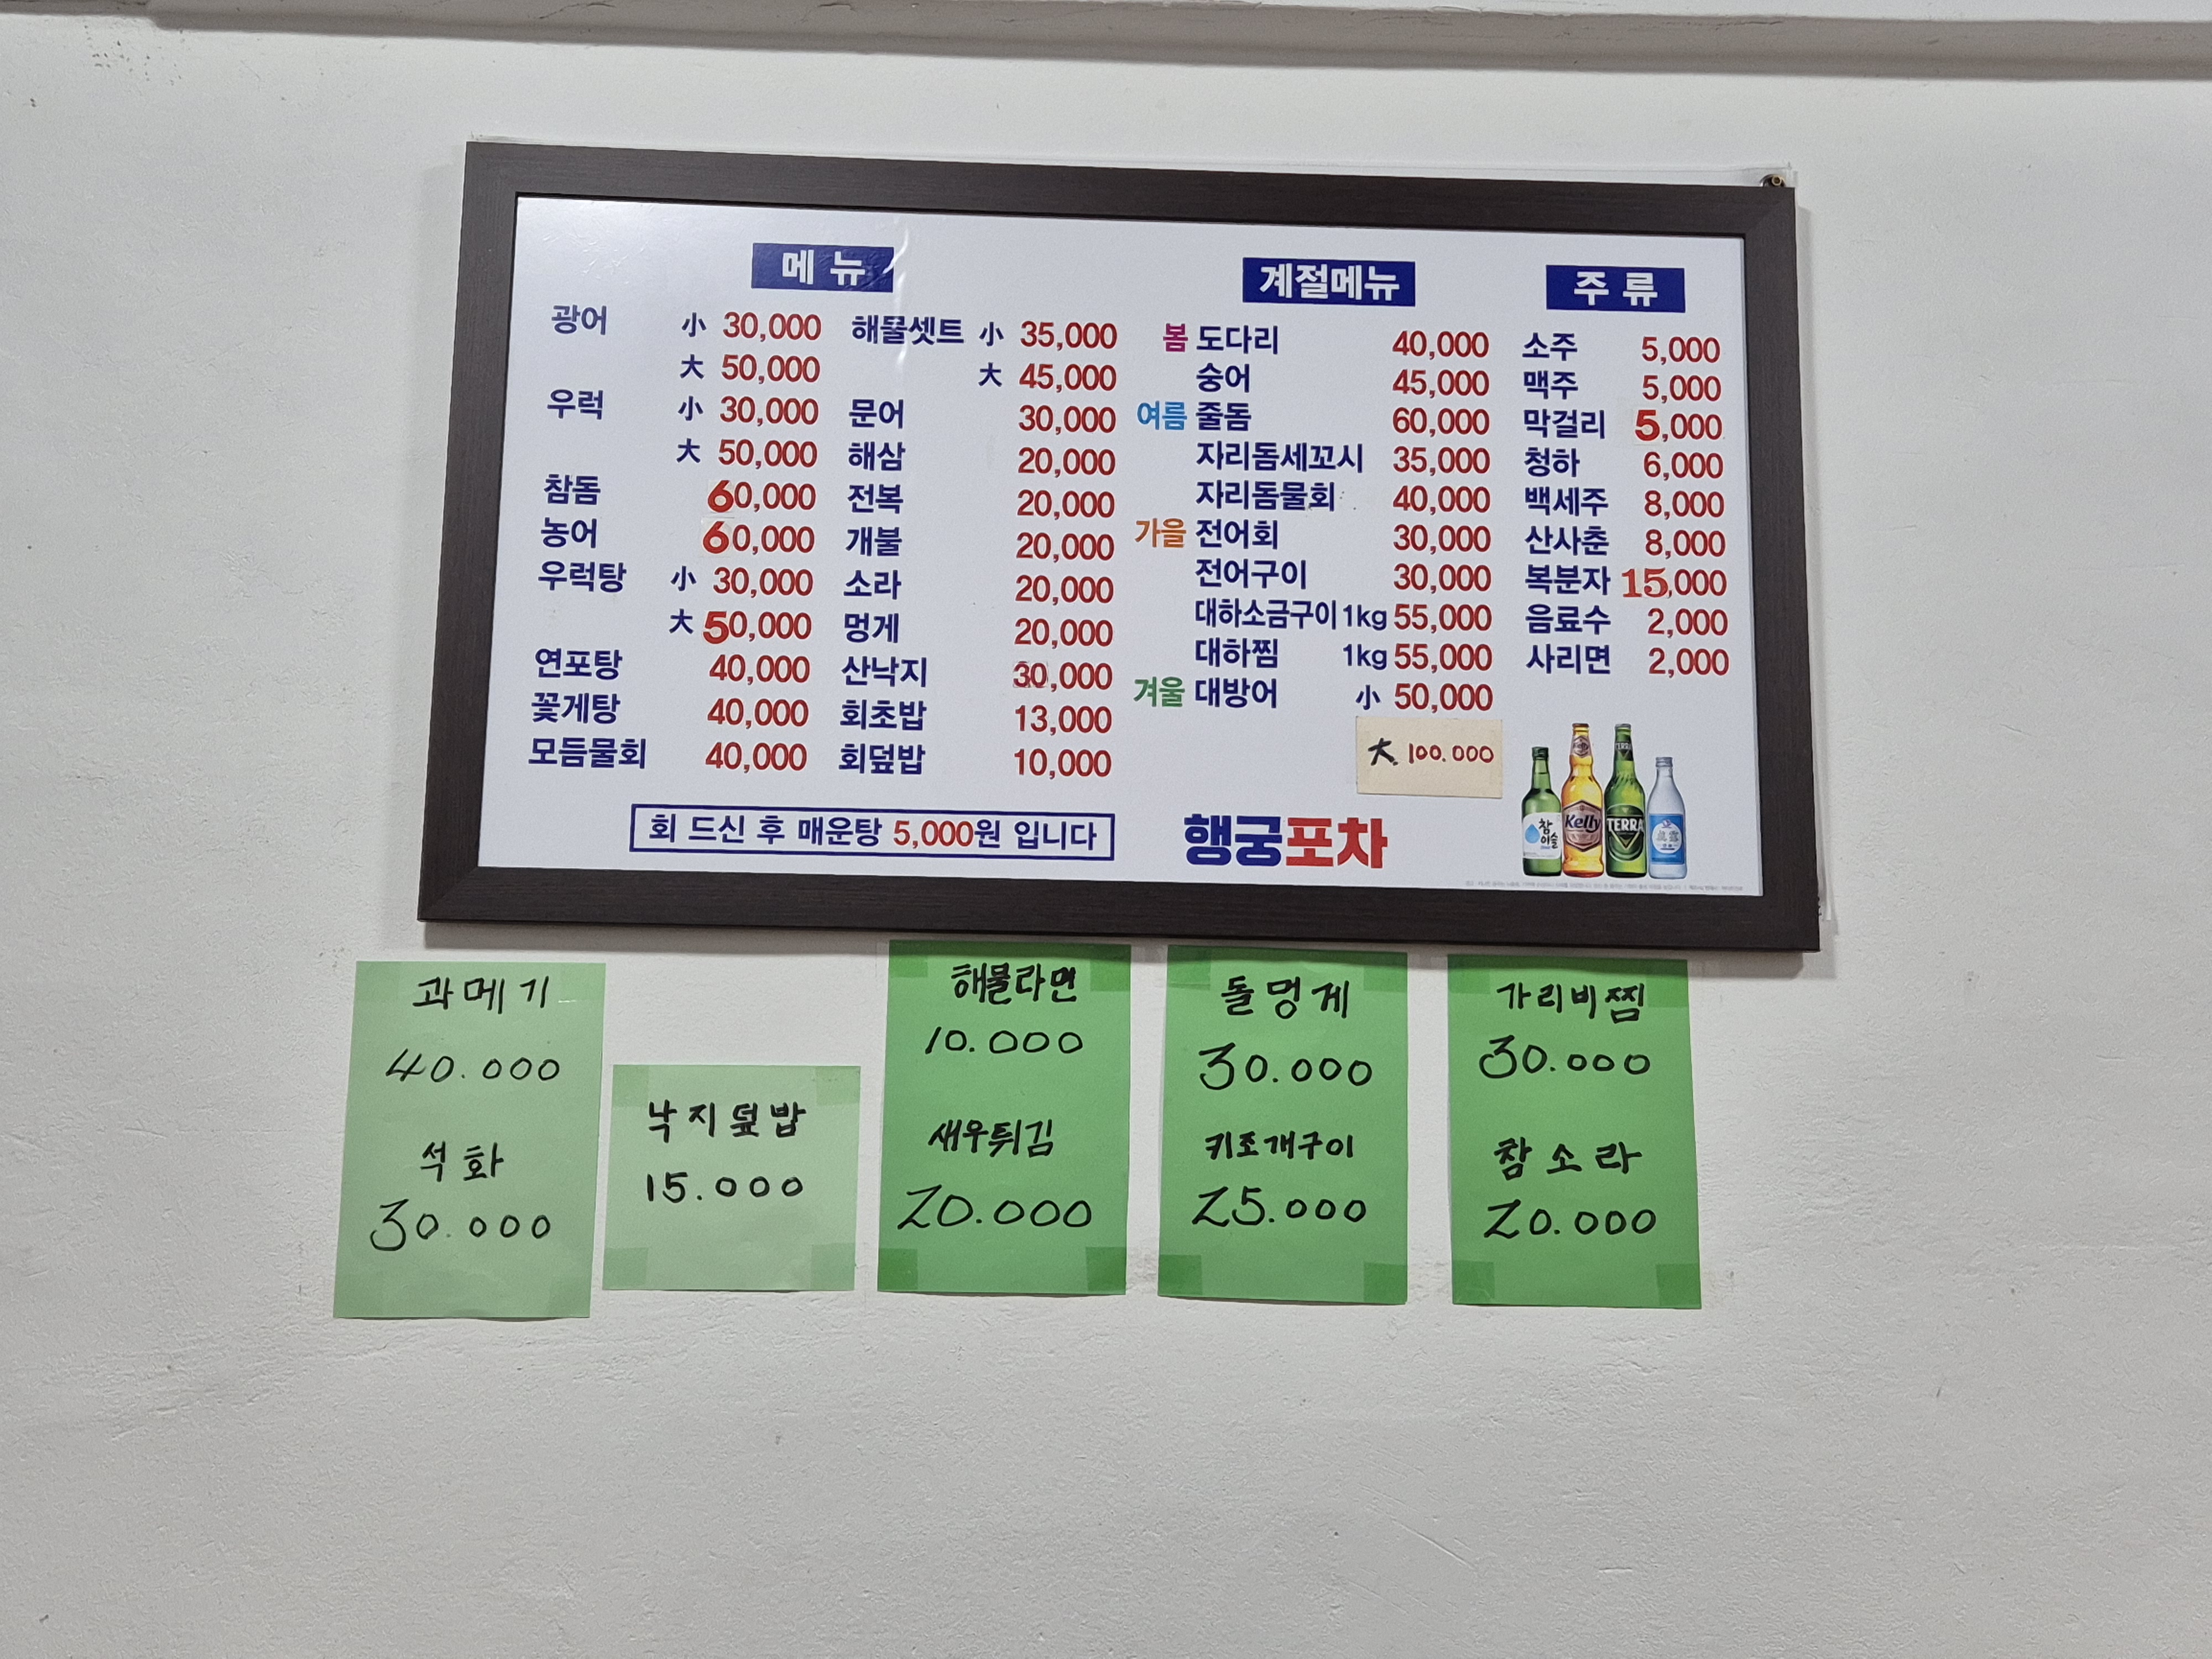 메뉴
광어 小 30,000
大 50,000
우럭 小 30,000
大 50,000
참돔 60,000
농어 60,000
우럭탕 小 30,000
大 50,000
연포탕 40,000
꽃게탕 40,000
모듬물회 40,000
해물셋트 小 35,000
大 45,000
문어 30,000
해삼 20,000
전복 20,000
개불 20,000
소라 20,000
멍게 20,000
산낙지 30,000
회초밥 13,000
회덮밥 10,000
회 드신 후 매운탕 5,000원 입니다
계절메뉴
봄 도다리 40,000
숭어 45,000
여름 줄돔 60,000
자리돔세꼬시 35,000
자리돔물회 40,000
가을 전어회 30,000
전어구이 30,000
대하소금구이 1kg 55,000
대하찜 1kg 55,000
겨울 대방어 小 50,000
大. 100.000
행궁포차
주류
소주 5,000
맥주 5,000
막걸리 5,000
청하 6,000
백세주 8,000
산사춘 8,000
복분자 15,000
음료수 2,000
사리면 2,000
참이슬
Kelly
TERRA
TERRA
과메기
40.000
석화
30.000
낙지덮밥
15.000
해물라면
10.000
새우튀김
20.000
돌멍게
30.000
키조개구이
25.000
가리비찜
30.000
참소라
20.000